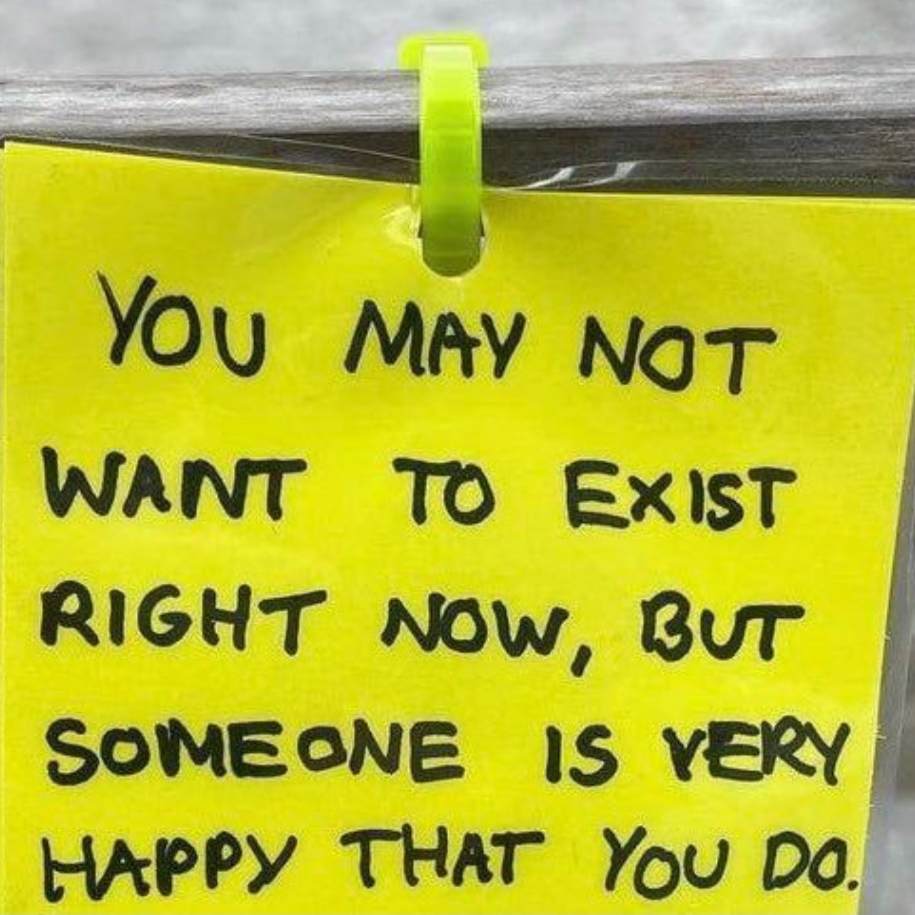 YOU MAY NOT
WANT TO EXIST
RIGHT NOW, BUT
SOMEONE IS VERY
HAPPY THAT YOU DO.